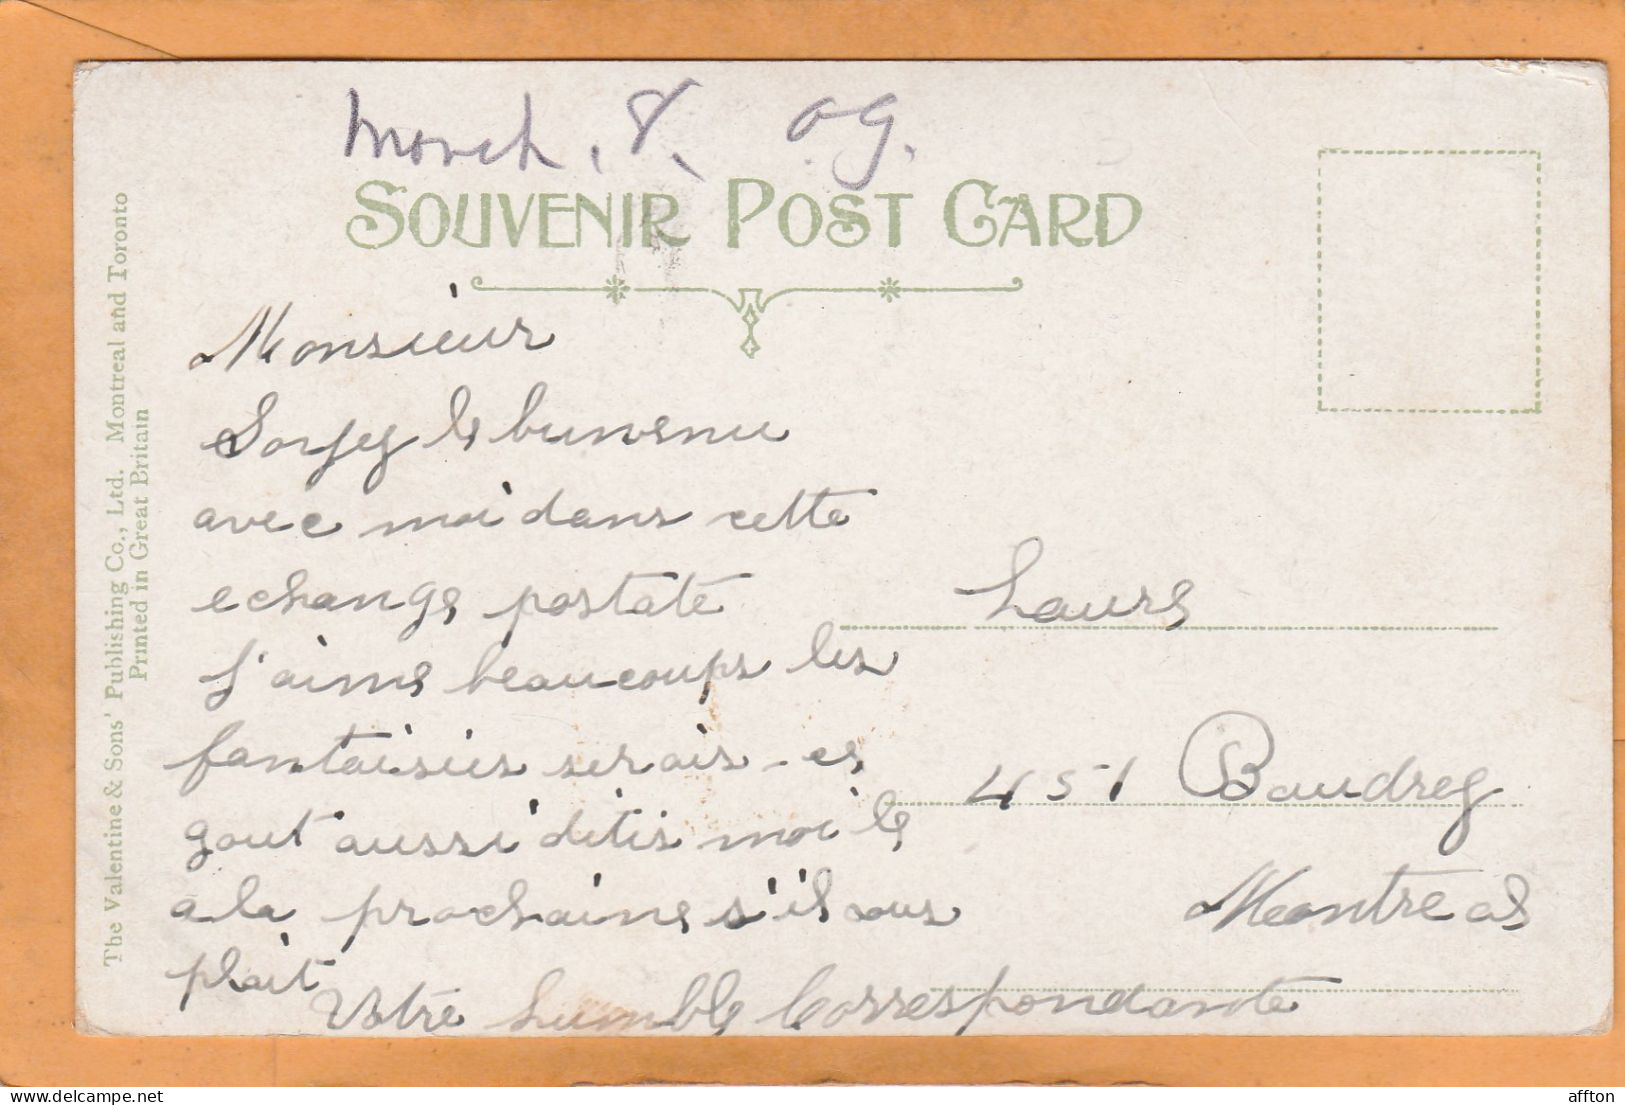 March. 8. 09.
SOUVENIR POST CARD
The Valentine & Sons' Publishing Co., Ltd. Montreal and Toronto
Printed in Great Britain
Monsieur
Soyez le bienvenu
avec moi dans cette
echange postate
J'aime beaucoups les
fantaisies serais-ce
gout aussi dites moi le
a la prochaine s'il vous
plait
Votre humble Correspondante
Laure
451 Baudrey
Montreal
affton
delcampe.net